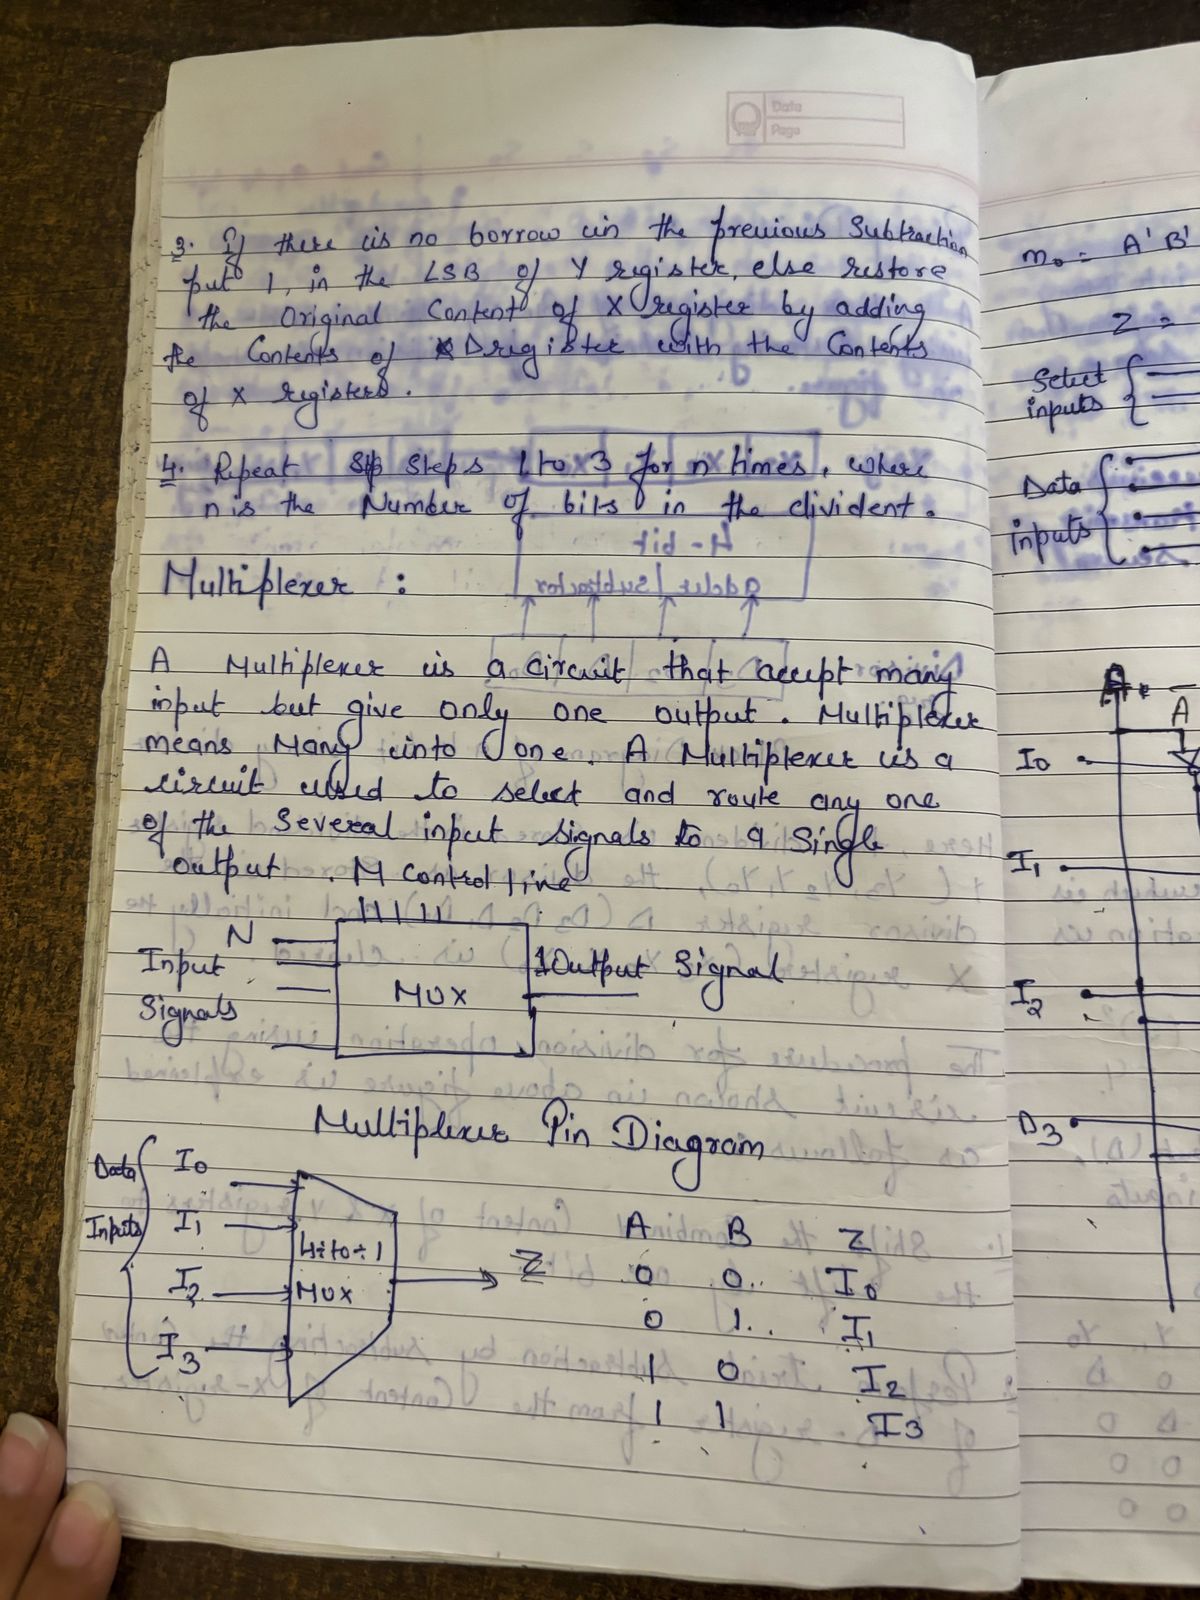 Date
Page
3. If there is no borrow in the previous Subtraction
put 1, in the LSB of Y register, else restore
the Original Content of X register by adding
the Contents of D register with the Contents
of X registers.
4. Repeat Steps 1 to 3 for n times, where
n is the Number of bits in the divident.
Multiplexer :
A Multiplexer is a circuit that accept many
input but give only one output. Multiplexer
means Many into one. A Multiplexer is a
circuit used to select and route any one
of the Several input signals to a Single
output. M Control line
N
Input
Signals
MUX
1 Output Signal
Multiplexer Pin Diagram
Data
Inputs
I0
I1
I2
I3
4÷to÷1
MUX
Z
A B Z
0 0 I0
0 1 I1
1 0 I2
1 1 I3
m0 = A' B'
Z =
Select
inputs
Data
inputs
A
I0
I1
I2
D3